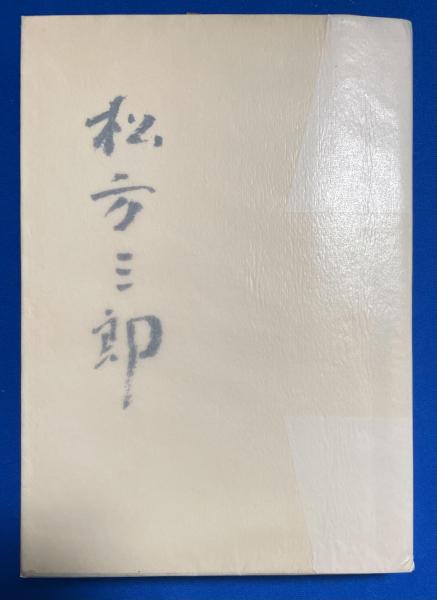 松方三郎